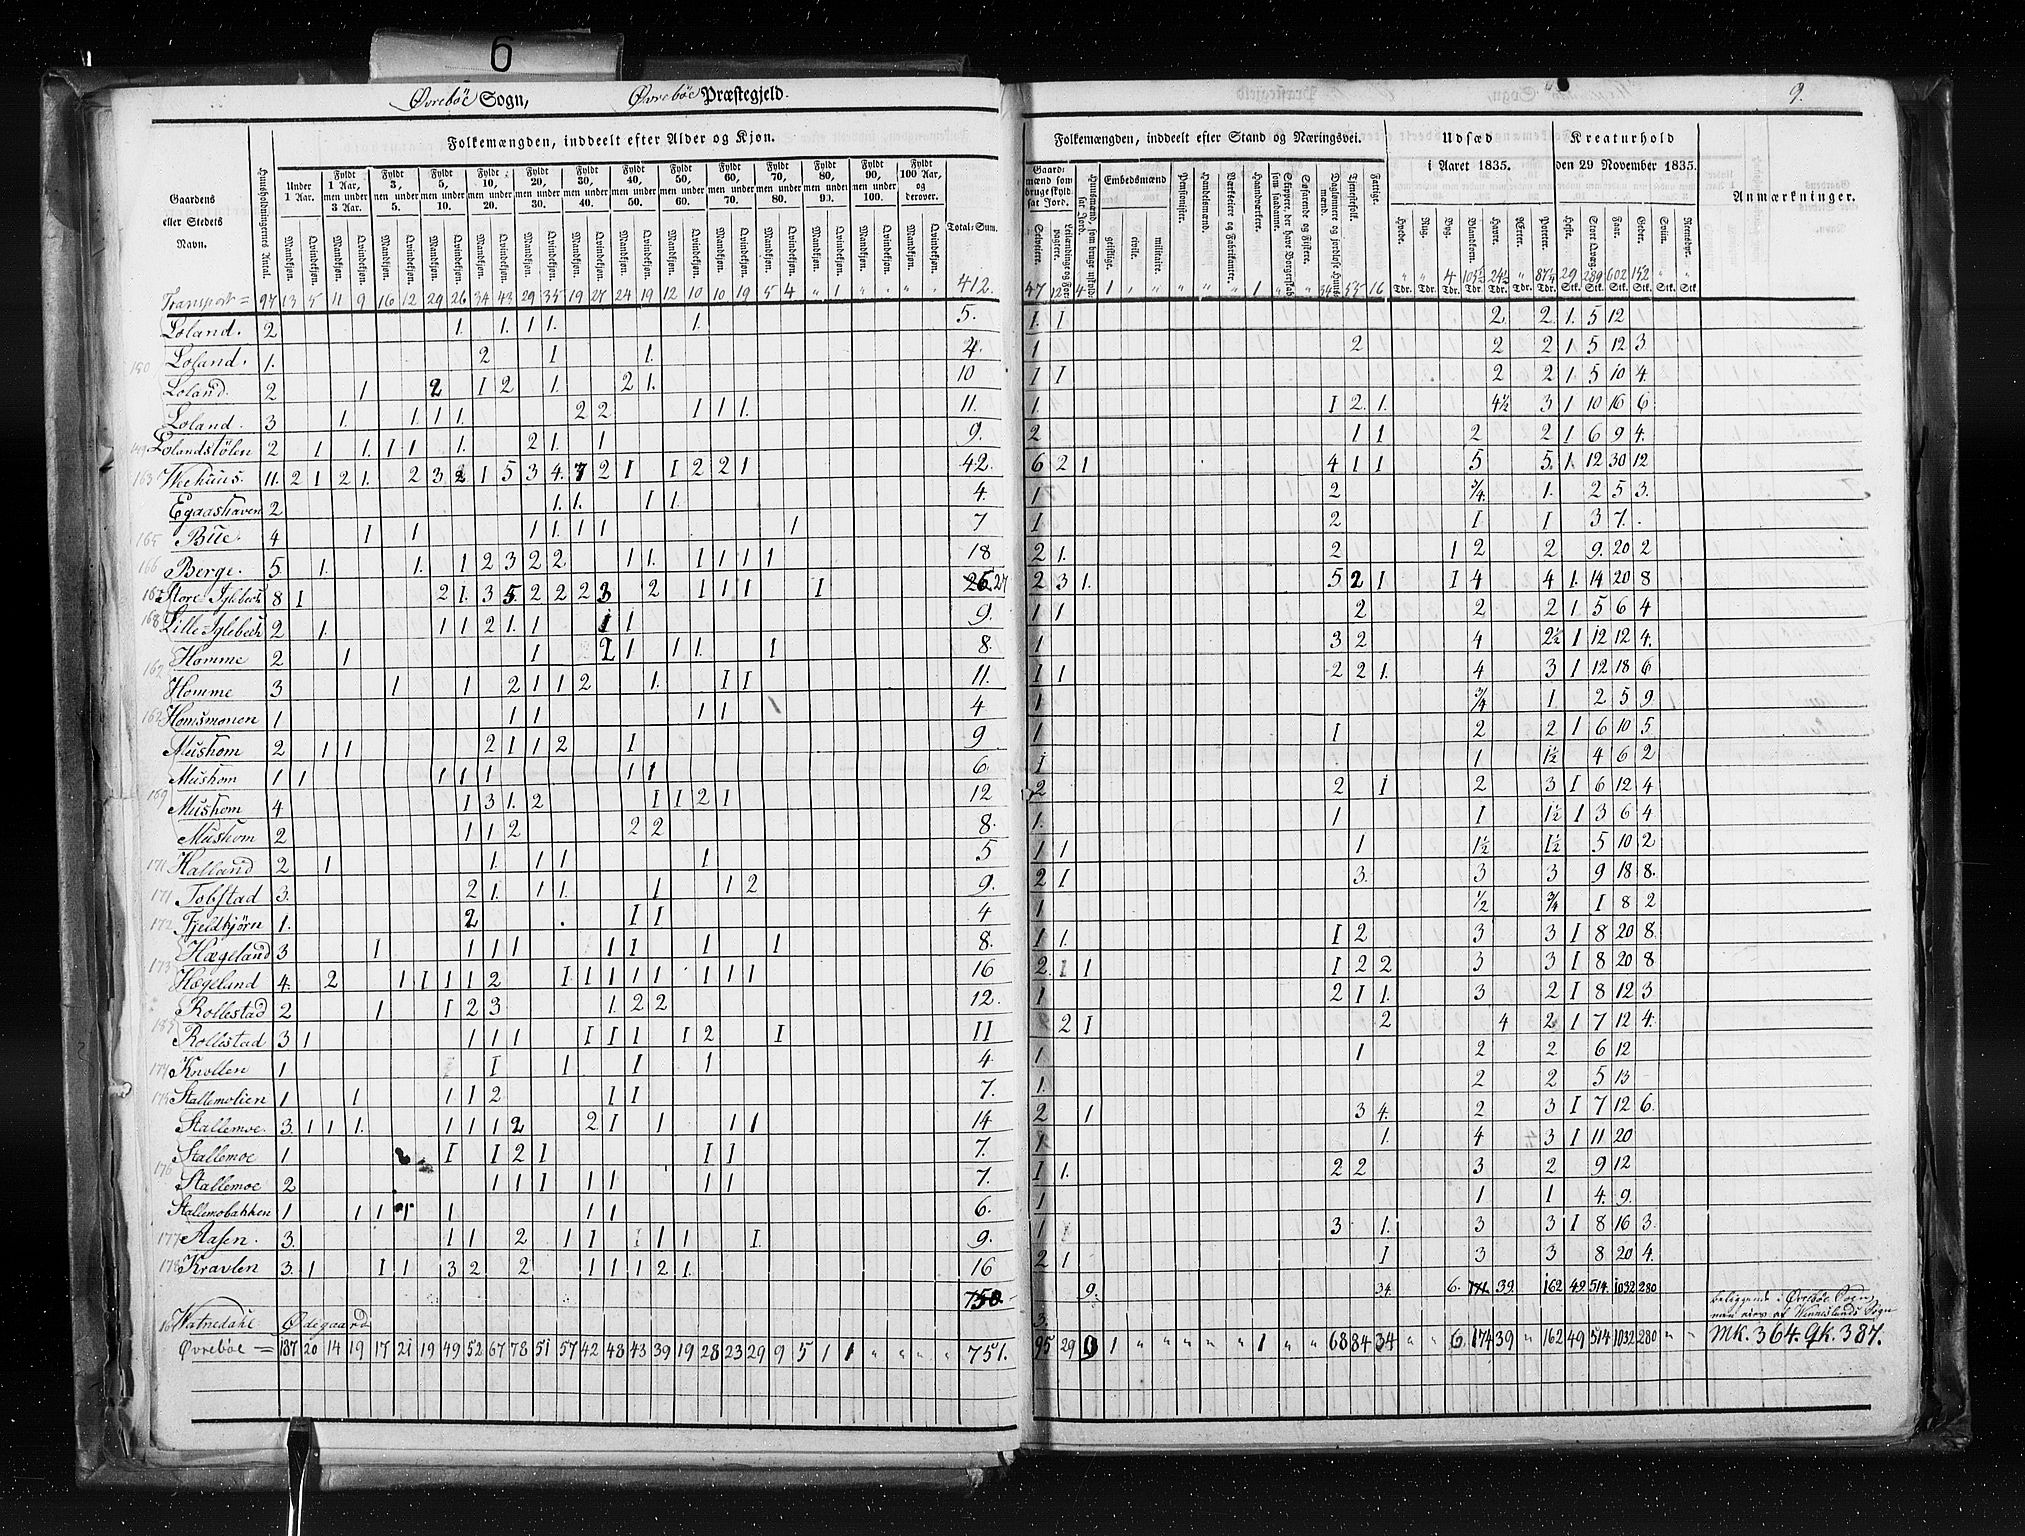 6
Øvrebøe Sogn, Øvrebøe Præstegjeld.
9.
Folkemængden, inddeelt efter Alder og Kjøn.
Folkemængden, inddeelt efter Stand og Næringsvei.
Udsæd i Aaret 1835.
Kreaturhold den 29 November 1835.
Anmærkninger.
Gaardens eller Stedets Navn.
Huusholdningernes Antal.
Under 1 Aar.
Fyldt 1 Aar, men under 3 Aar.
Fyldt 3, men under 5.
Fyldt 5, men under 10.
Fyldt 10, men under 20.
Fyldt 20, men under 30.
Fyldt 30, men under 40.
Fyldt 40, men under 50.
Fyldt 50, men under 60.
Fyldt 60, men under 70.
Fyldt 70, men under 80.
Fyldt 80, men under 90.
Fyldt 90, men under 100.
Fyldt 100 Aar, og derover.
Mandkjøn. Qvindekjøn.
Total-Sum.
Gaardmænd som bruge skyldsat Jord.
Selveiere.
Leilændinge og Forpagtere.
Huusmænd, som bruge uskyldsat Jord.
Embedsmænd
geistlige. civile. militaire.
Pensionister.
Handelsmænd.
Værkeiere og Fabrikanter.
Haandværkere.
Skippere, der have Borgerskab som saadanne.
Søfarende og Fiskere.
Dagleiere og jordløse Huusmænd.
Tjenestefolk.
Fattige.
Hvede. Rug. Byg. Blandkorn. Havre. Erter. Poteter.
Heste. Stort Qvæg. Faar. Geder. Sviin. Rensdyr.
Transport = 97 13 5 11 9 16 12 29 26 34 43 29 35 19 27 24 19 12 10 10 19 5 4 " 1 " " " " 412. 47 12 4 1 " " " " " 1 " " 34 53 16 " " 4 105½ 24½ " 87¼ 29 289 602 152 " "
Loland. 2 1. 1. 1 1. 1. 5. 1. 1 2 2 1. 5 12 1
150 Loland. 1. 2 1 1. 4. 1 2 2 2 1 5 12 3
Loland. 2 1 2 1 2 1. 2 1. 10 1 1 2 2 1 5 10 4.
Loland. 3 1. 1 1 1. 2 2 1 1 1. 11. 1. 1 2. 1. 4½ 3 1 10 16 6
149 Lolandstölen 2 1 1. 1 1 1. 2 1. 1 9. 2 1 1 2 2 1 6 9 4.
163 11. 2 1 2 1. 2 3 2 1 5 3 4. 7 2 1 1 2 2 1 42. 6 2 1 4 1 1 5 5. 1. 12 30 12
Egaashaven 2 1. 1. 1 1. 4. 1 2 ¾. 1. 2 5 3.
165 Bue. 4 1 1 1 1. 1 1 1 7 1 2 1 1 3 7.
166 Berge. 5. 1. 1. 1 2 3 2 2. 1 1. 1 1 1 1 1 18 2 1. 2 1 2 2 9. 20 2
167 Store Iglebæk 8 1 2 1. 3 5. 2 2 2 3 2 1 1 1 1 27 2 3 1. 5 2 1 1 4 4 1. 14 20 8
168 Lille Iglebæk 2 1. 1 1 2 1. 1 1 1 9. 1 1 2 2 2 1. 5 6 4
Homme 2 1 1 2 1 1 1. 1 8. 1 3 2 4 2½ 1 12 12 4.
162 Homme 3 1 1 2 1 1 2 1. 1 1 11. 1 1 2 2 1. 4 3 1 12 18 6
162 Homsmonen 1 1 1 1 1 4 1 ¾ 1. 2 5 9.
Mushom 2 1 1 2 1 1 2 1 9 1 1 2 2 1 6 10 5.
Mushom 1 1 1 1 1 1 1 6. 1 1 1½ 4 6 2
169 Mushom 4 1 3 1. 2 1 1 2 1 12 2 2 1 2 3 1 6 12 4
Mushom 2 1 1 2 2 2 8. 1. 1 1 1½ 1 3 6 4
171 Halland 2 1 1. 1 1 1 5 1 1 1 1½ 1½ 5 10 2
171 Tobstad 3. 2 1. 1 1. 1 1 2 9. 2 1 3. 3 3 9 18 8.
172 Fjeldkjörn 1. 2 1 1 4 1 ½ ¾ 1 8 2
Hægeland 3 1 1 1 1 1 1 1 1 8. 1 1. 1 2 3 3 1 8 20 8.
173 Hægeland 4. 2 1 1 1 1 2 1 1 1 1 1 1 1 1 16 2. 1 1 1 2 2 3 3 1 8 20 8
Rollestad 2 1 1 2 3 1. 2 2 12. 1 2 1 1. 3 2 1 8 12 3
Rollestad 3 1 1 1 1 1 1 1 1 2 1 11 2 1 2 4 2 1 7 12 4.
174 Knollen 1 1 1 1 1 4 1 1 2 2 6 12
175 Stallemolien 1 1 1 1 2 1 1 7. 1. 2 2 5 13
Stallemoe. 3. 1 1 1. 1 1 1 2 2 1 1 1 1 14 2 1 3 4. 2 3 1 7 12 6.
Stallemoe 1 1 1 2 1 1 1 7. 1. 4 3 1 11 20
176 Stallemoe 2 1 1 1 1 1 1 1 7. 1 1. 2 2 3 2 9 12
Stallemobakken 1 1 1 1 1 1 1 6. 1 1 1 4. 9.
177 Aasen. 3. 1 1 2 1 1 1 1 1 1. 9. 1 3 1. 3 3 1 8 16 3.
178 Kravlen 3. 1 1 1 3 2 2 1 1 1 2 1. 16 2 1 1 3 3 8 20 4.
750. 9. 34. 6. 171. 39. 162 49. 514. 1032 280
Watnedahl Ødegaard 3. beliggende i Øvrebøe Sogn
Øvrebøe = 187 20 14 19 17 21 19 49 52 67 78 51 57 42 48 43 39 19 28 23 29 9 5 1 1 " " " " 751. 95 29 9 1 " " " " " " 1 " " 68 84 34 " " 6. 174 39 " 162 49 514 1032 280 " " Mk. 364. Qk. 387.